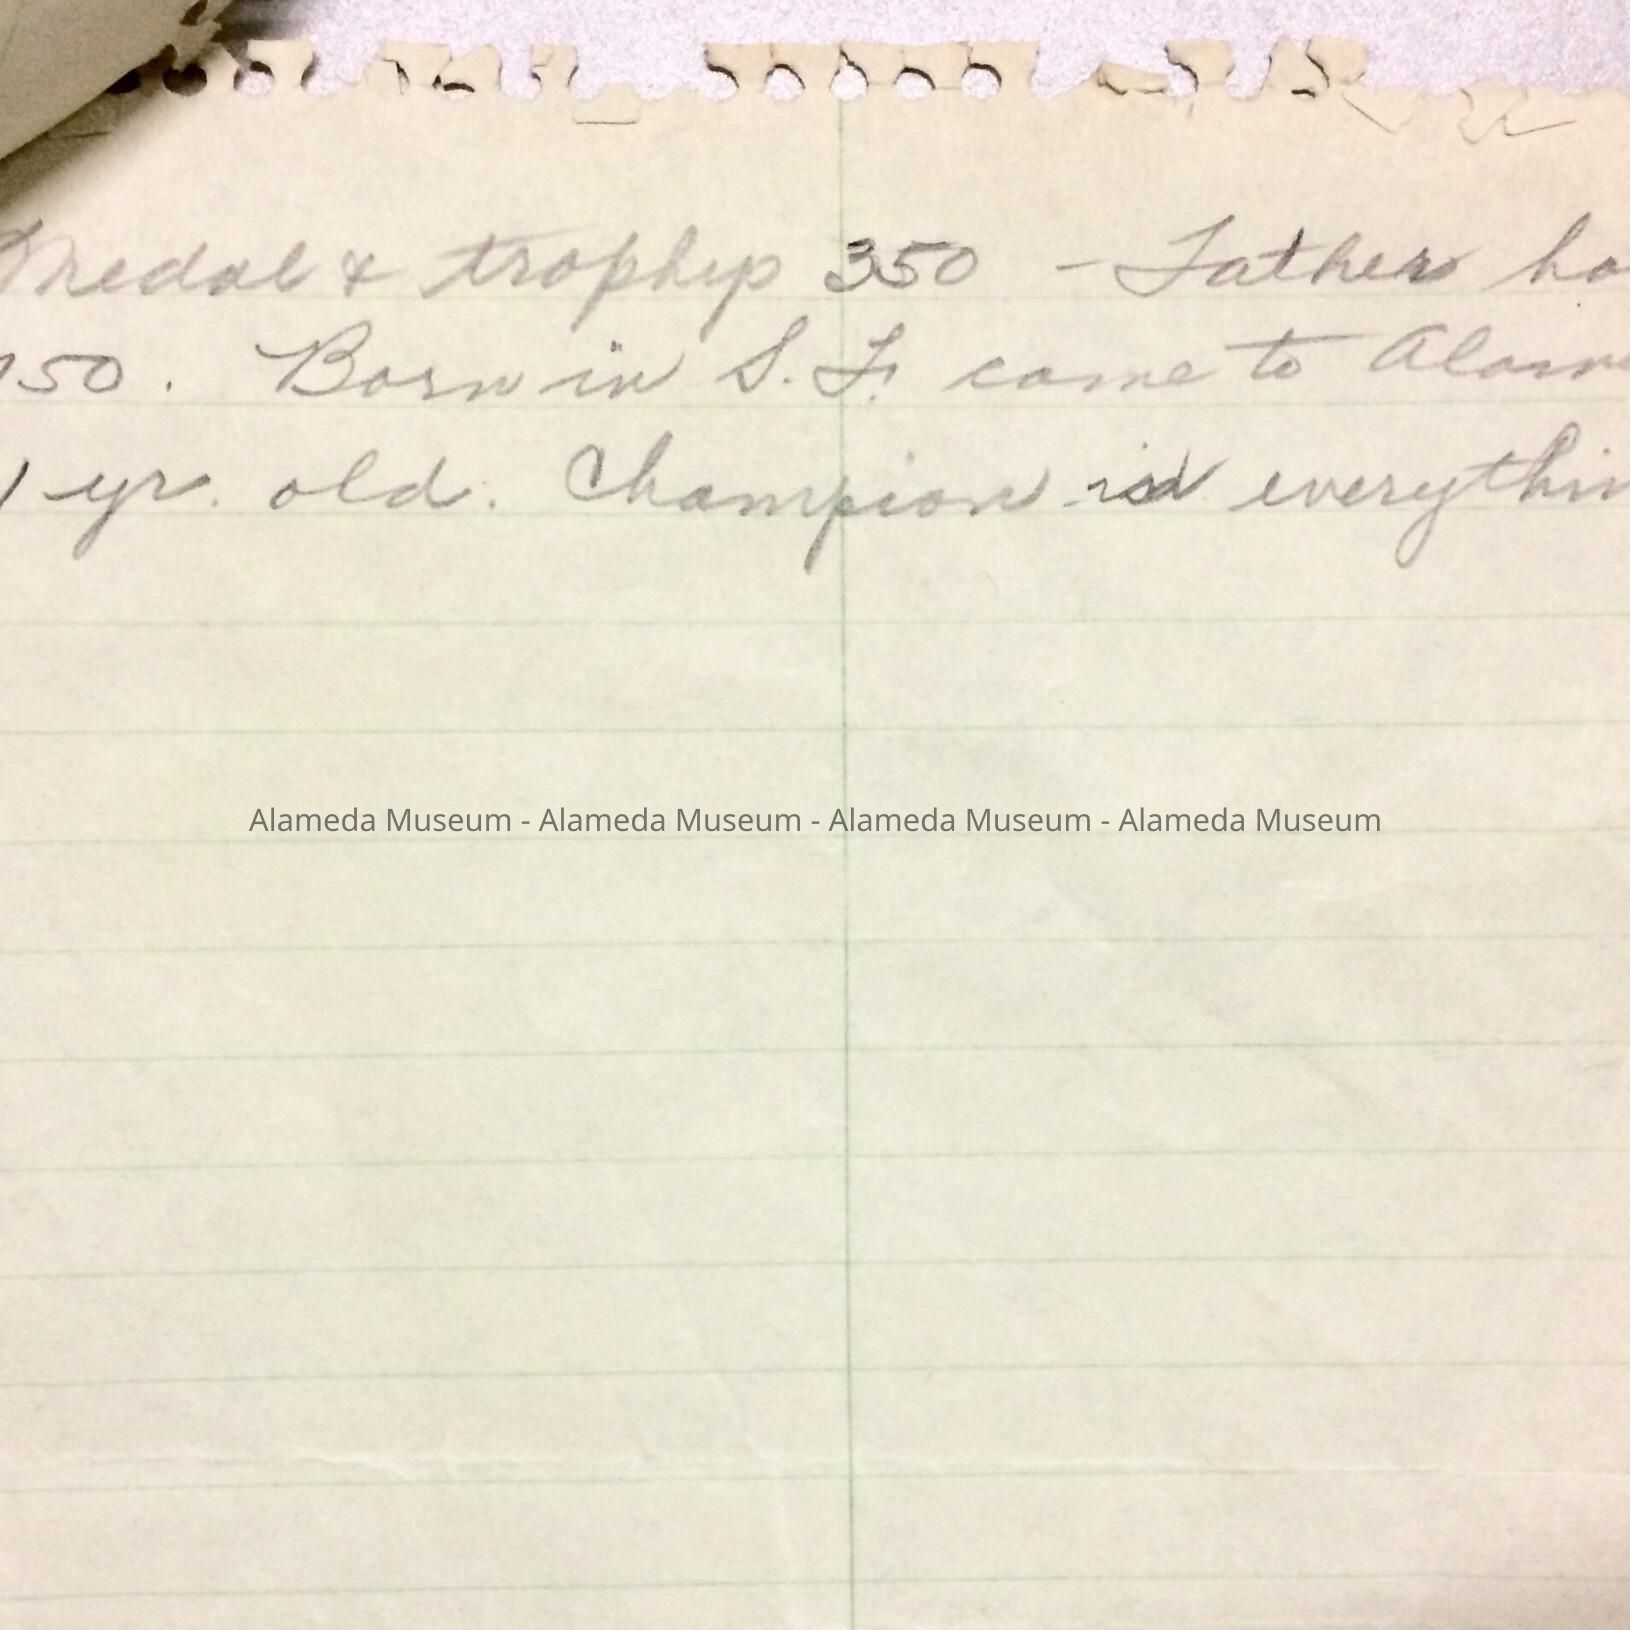 Medal & trophys 350 - Father ha
150. Born in S.F. came to Alame
1 yr. old. Champion in everythin
Alameda Museum - Alameda Museum - Alameda Museum - Alameda Museum